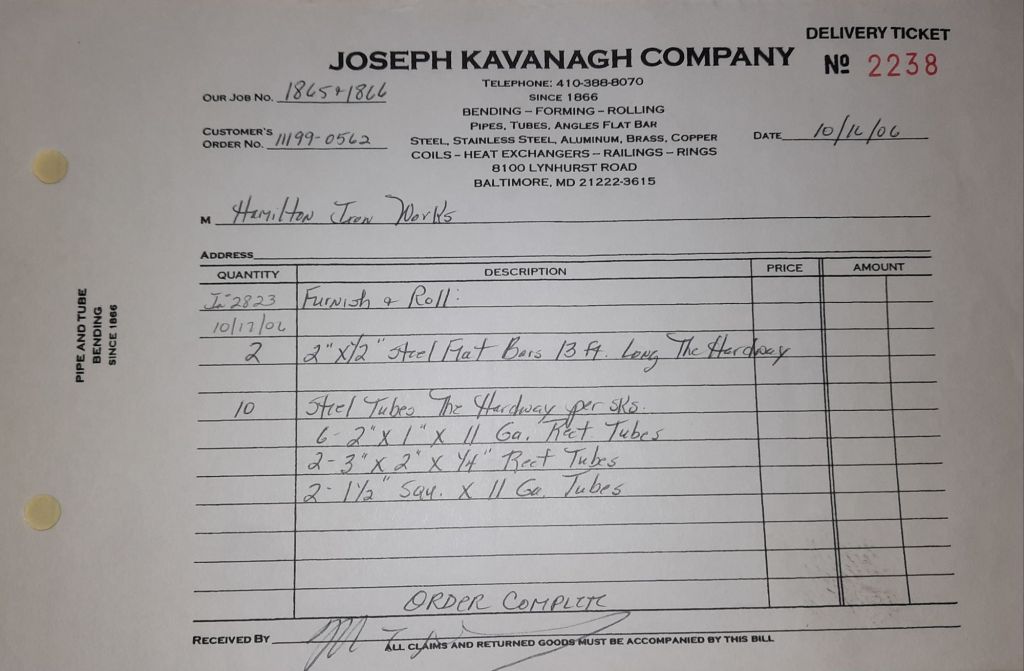 DELIVERY TICKET
JOSEPH KAVANAGH COMPANY
Nº 2238
TELEPHONE: 410-388-8070
SINCE 1866
BENDING – FORMING – ROLLING
PIPES, TUBES, ANGLES FLAT BAR
STEEL, STAINLESS STEEL, ALUMINUM, BRASS, COPPER
COILS – HEAT EXCHANGERS – RAILINGS – RINGS
8100 LYNHURST ROAD
BALTIMORE, MD 21222-3615
OUR JOB NO. 1865+1866
CUSTOMER'S
ORDER NO. 11199-0562
DATE 10/16/06
M Hamilton Iron Works
ADDRESS
QUANTITY DESCRIPTION PRICE AMOUNT
2823 Furnish + Roll:
10/17/06
2 2" x 1/2" Steel Flat Bars 13 ft. Long The Hardway
10 Steel Tubes The Hardway per sks.
6- 2" x 1" x 11 Ga. Rect Tubes
2- 3" x 2" x 1/4" Rect Tubes
2- 1 1/2" Squ. x 11 Ga. Tubes
ORDER COMPLETE
RECEIVED BY
ALL CLAIMS AND RETURNED GOODS MUST BE ACCOMPANIED BY THIS BILL
PIPE AND TUBE
BENDING
SINCE 1866